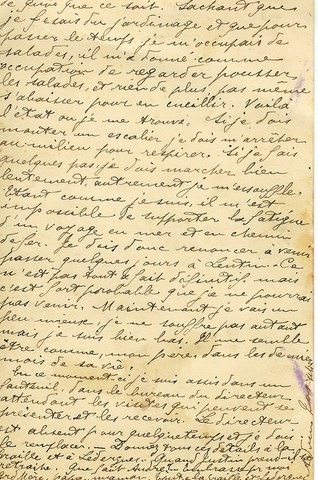 de quoi que ce soit. Sachant que
je faisais du jardinage et que pour
passer le temps je m'occupais de
salades, il m'a donné comme
occupation de regarder pousser
les salades, et rien de plus, pas même
s'abaisser pour en cueillir. Voilà
l'état ou je me trouve. Si je dois
monter un escalier je dois m'arrêter
au milieu pour respirer. Si je fais
quelques pas je dois marcher bien
lentement, autrement je m'essouffle.
Etant comme je suis, il m'est
impossible de supporter la fatigue
d'un voyage en mer et en chemin
de fer. Je dois donc renoncer à venir
passer quelques jours à Ce
n'est pas tout à fait définitif mais
c'est fort probable que je ne pourrai
pas venir. Maintenant je vais un
peu mieux, je ne souffre pas autant
mais je suis bien bas. Il me semble
être comme, mon père, dans les derniers
mois de sa vie.
En ce moment-ci je suis assis dans un
fauteuil, dans le bureau du directeur
attendant les visites qui peuvent se
présenter et les recevoir. Le directeur
est absent pour quelque temps et je dois
le remplacer. Donnez tous ces détails à la
et à Quand Louis prend-il sa
retraite. Que fait André?